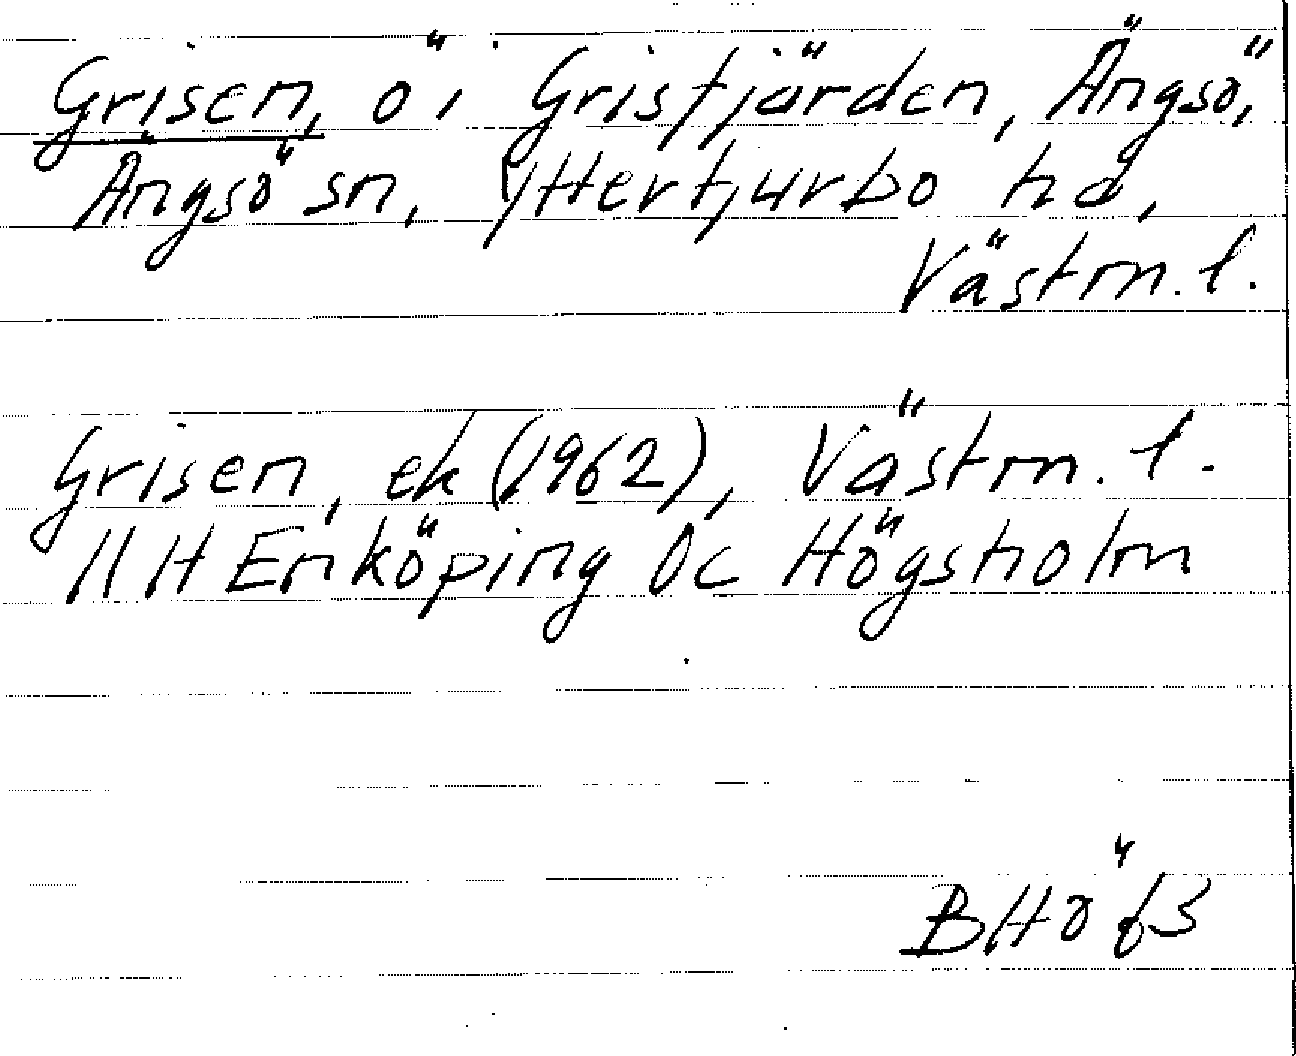 Grisen, ö i Grisfjärden, Ängsö,
Ängsö sn, Yttertjurbo hd,
Västm.l.
Grisen, ek (1962), Västm. l.
11 H Enköping 0c Högsholm
BHö 63